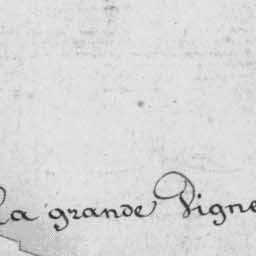 La grande Vigne